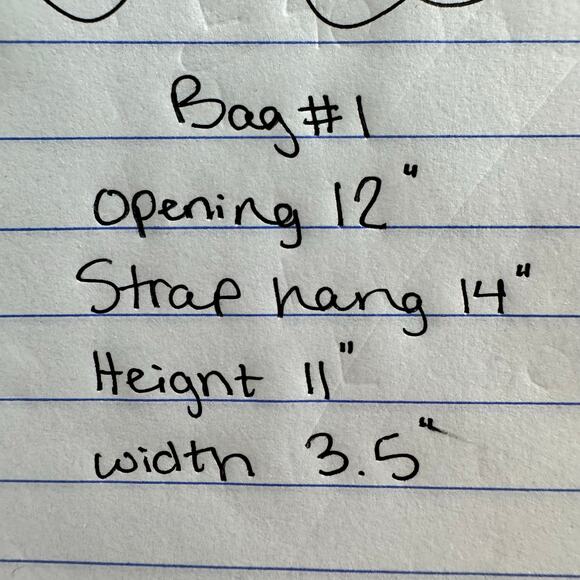 Bag #1
Opening 12"
Strap hang 14"
Height 11"
width 3.5"